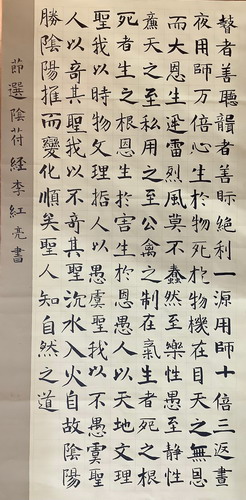 瞽者善聽聾者善眎絕利一源用師十倍三返晝
夜用師万倍心生於物死於物機在目天之無恩
而大恩生迅雷烈風莫不蠢然至樂性愚至靜性
廉天之至私用之至公禽之制在氣生者死之根
死者生之根恩生於害生於恩愚人以天地文理
聖我以時物文理哲人以愚虞聖我以不愚虞聖
人以奇其聖我以不奇其聖沉水入火自故陰陽
勝陰陽推而變化順矣聖人知自然之道
節選陰符經李紅亮書